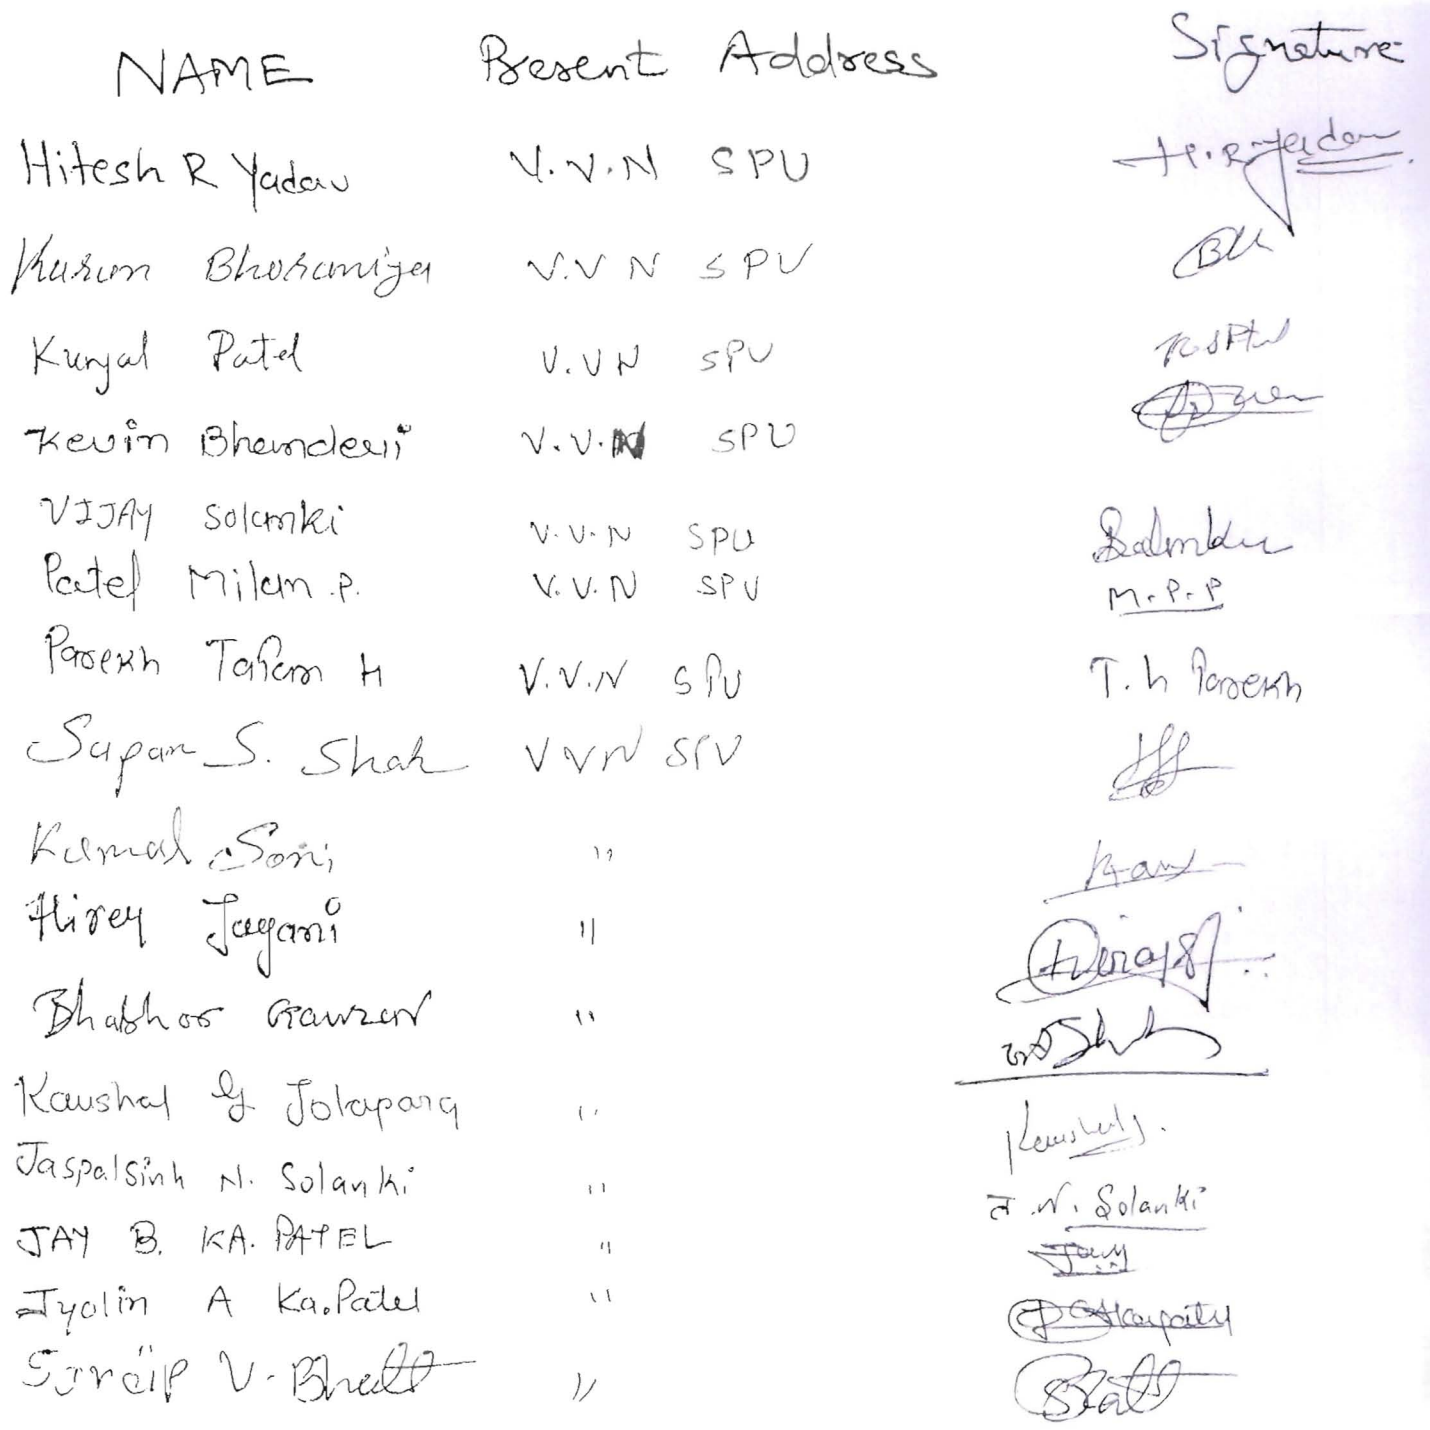 NAME Present Address Signature
Hitesh R Yadav V.V.N SPU H.R.Yadav
Karan Bhoraniya V.V N SPU
Kunjal Patel V.V N SPU
Kevin Bhanderi V.V.N SPU
VIJAY Solanki V.V.N SPU
Patel Milan .P. V.V.N SPU M.P.P
Parekh H V.V.N SPU T.h Parekh
Sapan S. Shah V V N SPU
Kamal Soni "
Jagani "
Bhabhor "
Kaushal G Jolapara " Kaushal J.
Jaspalsinh N. Solanki " J.N. Solanki
JAY B. KA. PATEL " Jay
Jyolin A Ka.Patel "
V. Bhatt " Bhatt